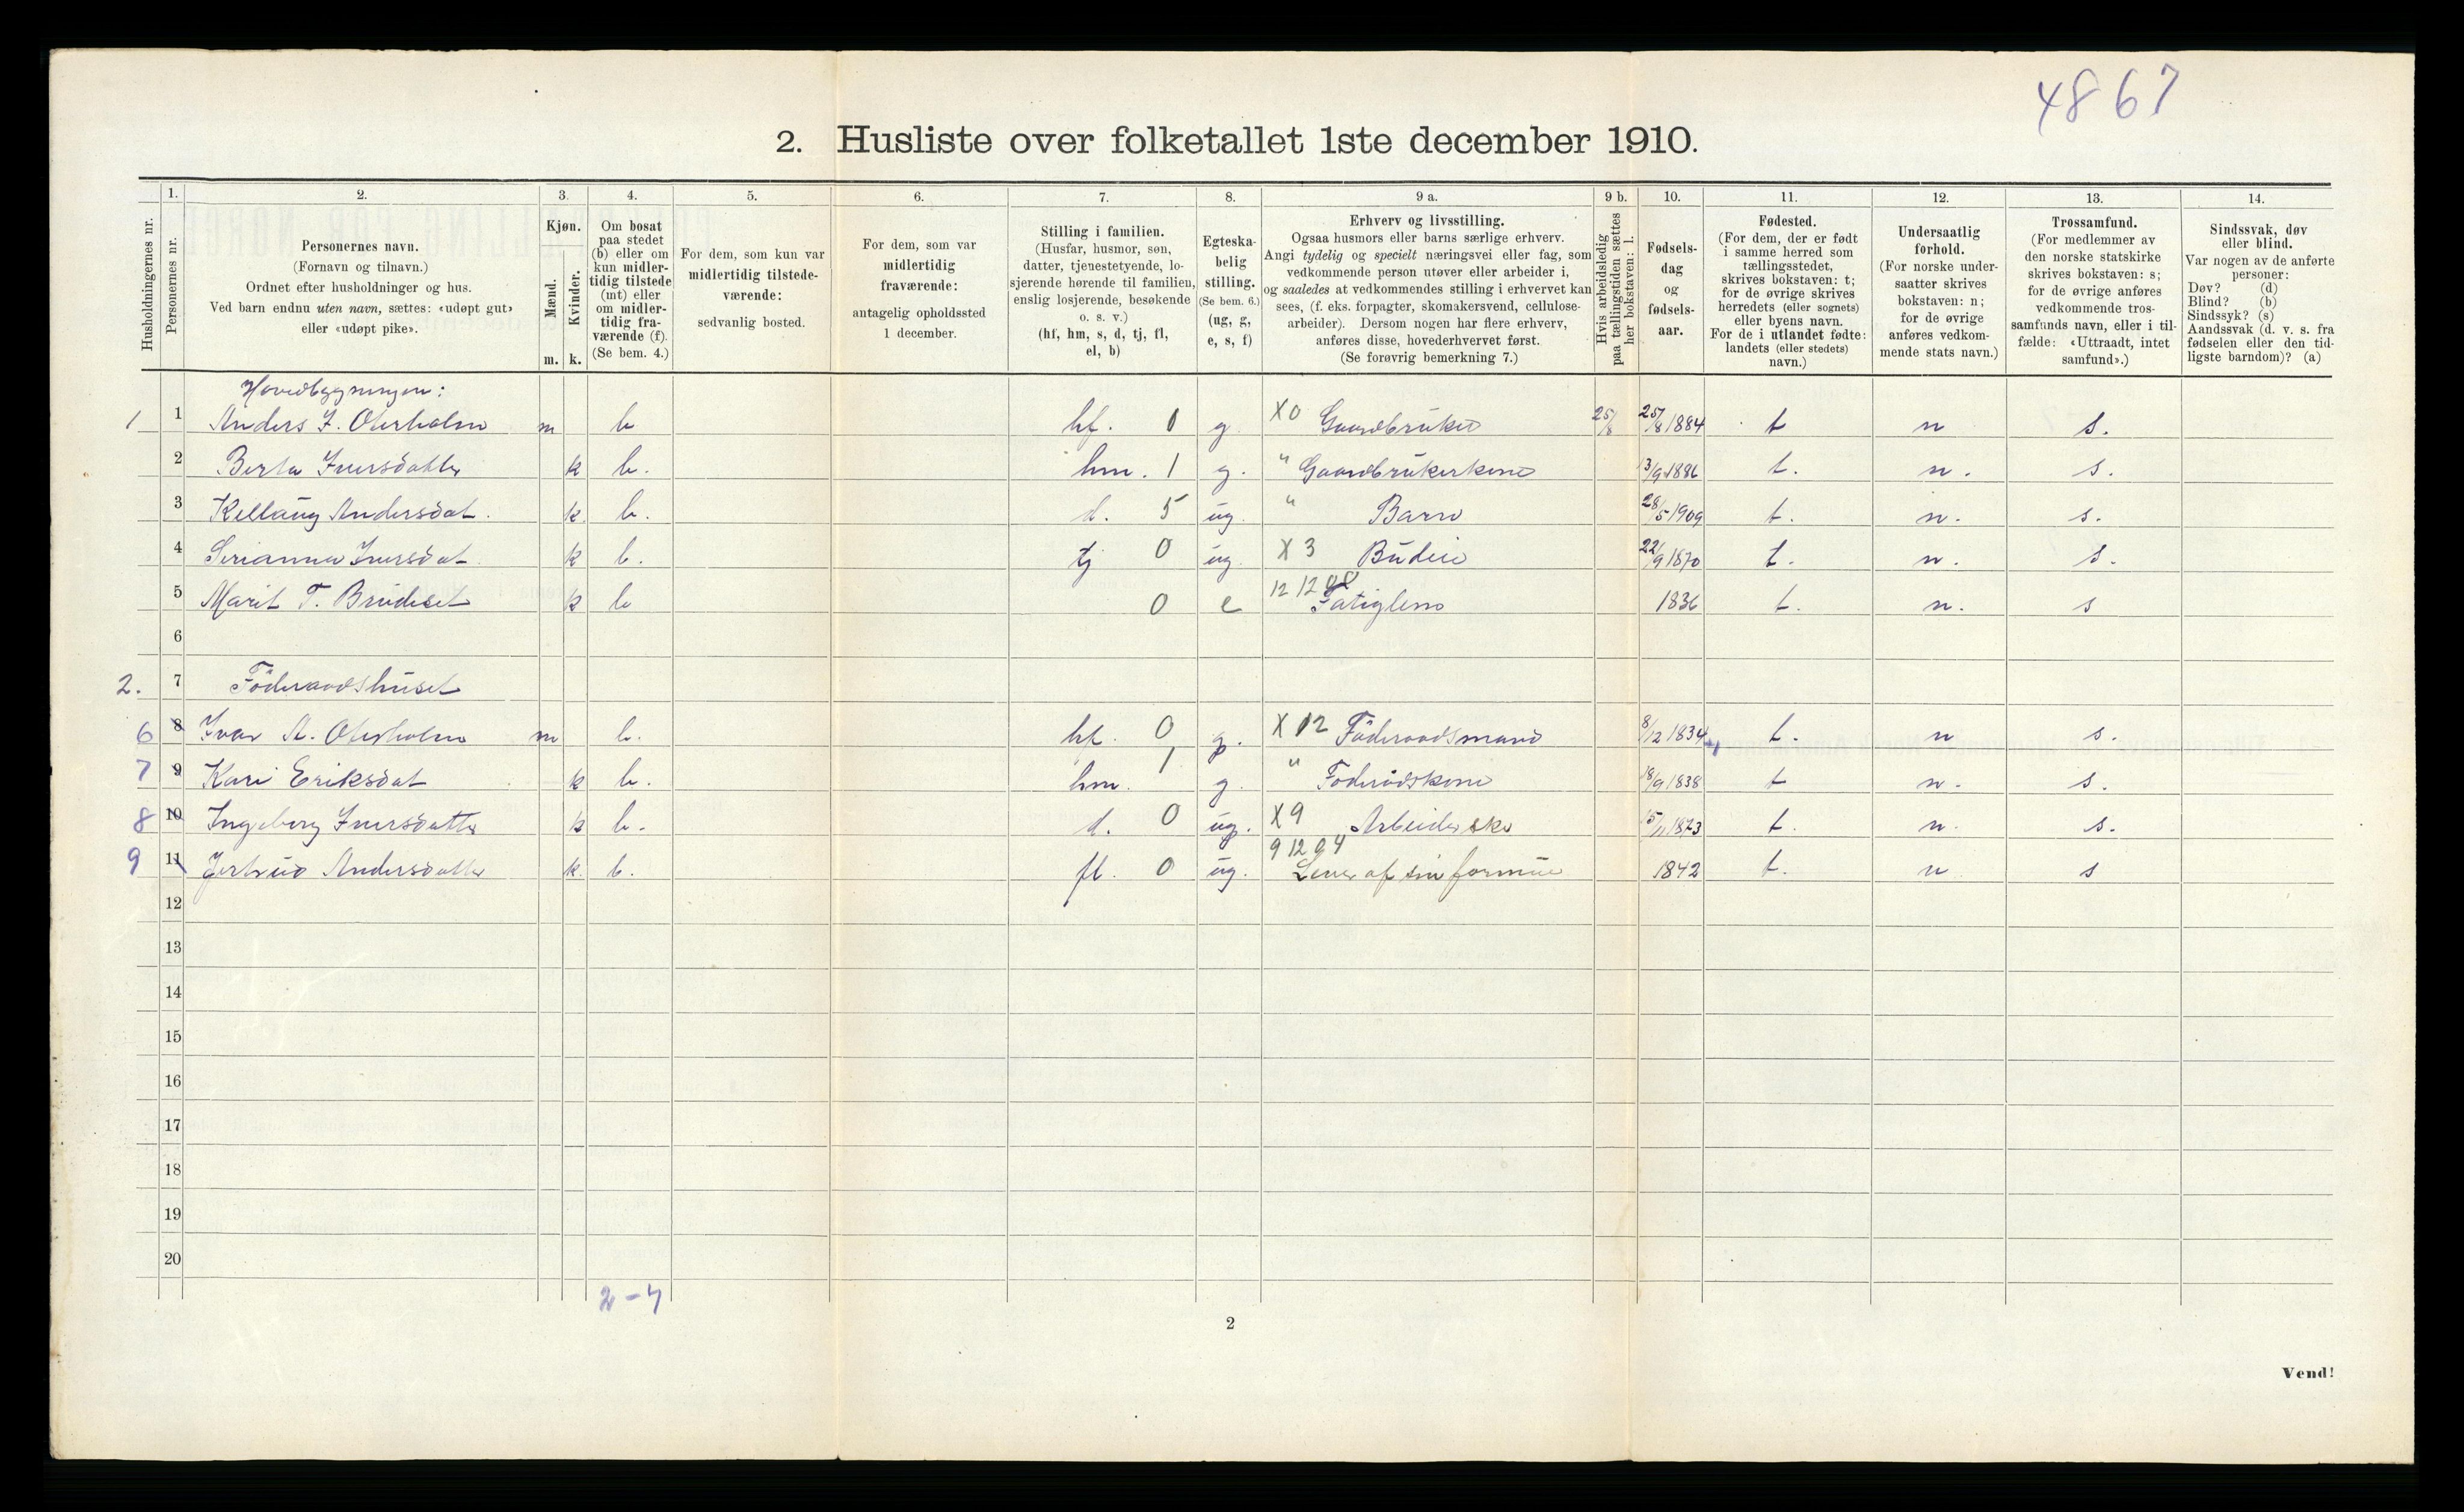 4867
2. Husliste over folketallet 1ste december 1910.
Husholdningernes nr.
1.
Personernes nr.
2.
Personernes navn.
(Fornavn og tilnavn.)
Ordnet efter husholdninger og hus.
Ved barn endnu uten navn, sættes: «udøpt gut»
eller «udøpt pike».
3.
Kjøn.
Mænd.
Kvinder.
m. k.
4.
Om bosat
paa stedet
(b) eller om
kun midler-
tidig tilstede
(mt) eller
om midler-
tidig fra-
værende (f).
(Se bem. 4.)
5.
For dem, som kun var
midlertidig tilstede-
værende:
sedvanlig bosted.
6.
For dem, som var
midlertidig
fraværende:
antagelig opholdssted
1 december.
7.
Stilling i familien.
(Husfar, husmor, søn,
datter, tjenestetyende, lo-
sjerende hørende til familien,
enslig losjerende, besøkende
o. s. v.)
(hf, hm, s, d, tj, fl,
el, b)
8.
Egteska-
belig
stilling.
(Se bem. 6.)
(ug, g,
e, s, f)
9 a.
Erhverv og livsstilling.
Ogsaa husmors eller barns særlige erhverv.
Angi tydelig og specielt næringsvei eller fag, som
vedkommende person utøver eller arbeider i,
og saaledes at vedkommendes stilling i erhvervet kan
sees, (f. eks. forpagter, skomakersvend, cellulose-
arbeider). Dersom nogen har flere erhverv,
anføres disse, hovederhvervet først.
(Se forøvrig bemerkning 7.)
9 b.
Hvis arbeidsledig
paa tællingstiden sættes
her bokstaven: l.
10.
Fødsels-
dag
og
fødsels-
aar.
11.
Fødested.
(For dem, der er født
i samme herred som
tællingsstedet,
skrives bokstaven: t;
for de øvrige skrives
herredets (eller sognets)
eller byens navn.
For de i utlandet fødte:
landets (eller stedets)
navn.)
12.
Undersaatlig
forhold.
(For norske under-
saatter skrives
bokstaven: n;
for de øvrige
anføres vedkom-
mende stats navn.)
13.
Trossamfund.
(For medlemmer av
den norske statskirke
skrives bokstaven: s;
for de øvrige anføres
vedkommende tros-
samfunds navn, eller i til-
fælde: «Uttraadt, intet
samfund».)
14.
Sindssvak, døv
eller blind.
Var nogen av de anførte
personer:
Døv? (d)
Blind? (b)
Sindssyk? (s)
Aandssvak (d. v. s. fra
fødselen eller den tid-
ligste barndom)? (a)
Hovedbygningen:
1 1 Anders I. Oterholm m b hf. 0 g X0 Gaardbruker 25/8 25/8 1884 t n s.
2 Berta Iversdatter k b. hm. 1 g. " Gaardbrukerkone 13/9 1886 t. n. s.
3 Kellaug Andersdat. k. b. d. 5 ug. " Barn 28/5 1909 t. n. s.
4 Serianna Iversdat. k b. tj 0 ug. X 3 Budeie 22/9 1870 t. n. s.
5 Marit T. Brudeset k b 0 e 12 12 08 Fatiglem 1836 t. n. s
6
2. 7 Föderaadshuset
6 8 Ivar A. Oterholm m b. hf. 0 g. X 12 Föderaadsmand 8/12 1834 t. n s.
7 9 Kari Eriksdat k b. hm. 1 g. " Foderådskone 18/9 1838 t n. s.
8 10 Ingeborg Iversdatter k b. d. 0 ug. X 9 Arbeiderske 15/11 1873 t. n. s.
9 11 Jertrud Andersdatter k. b. fl. 0 ug. 9 12 04 Lever af sin formue 1842 t. n s
12
13
14
15
16
17
18
19
20
2-7
2
Vend!